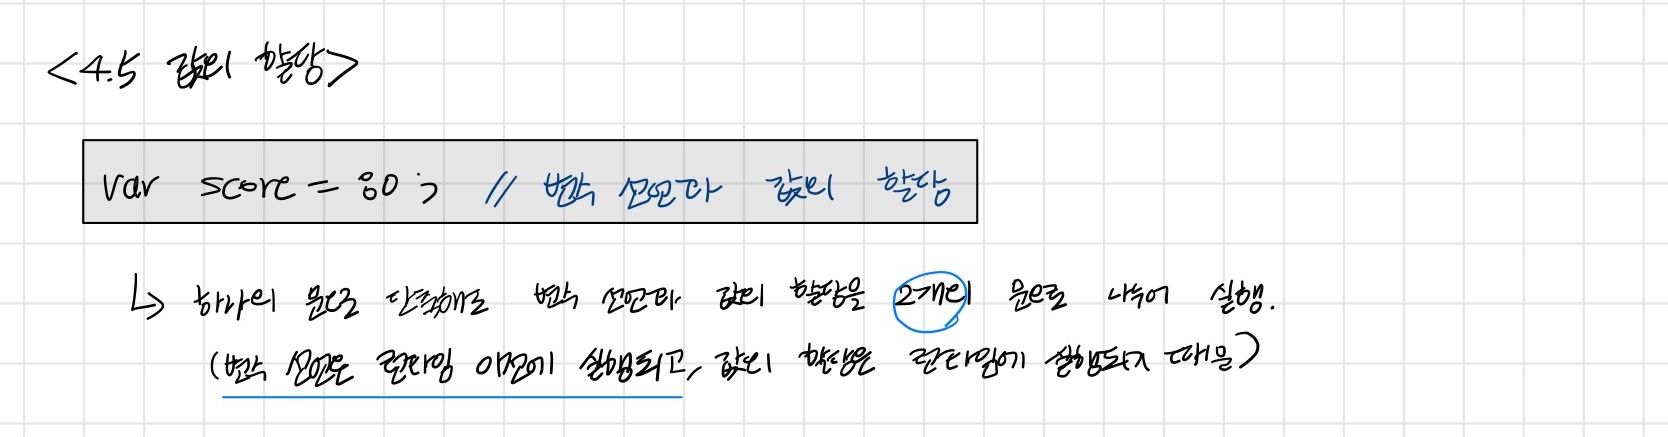 <4.5 값의 할당>
var score = 80; // 변수 선언과 값의 할당
↳ 하나의 문으로 단축해도 변수 선언과 값의 할당을 2개의 문으로 나누어 실행.
(변수 선언은 런타임 이전에 실행되고, 값의 할당은 런타임에 실행되기 때문)